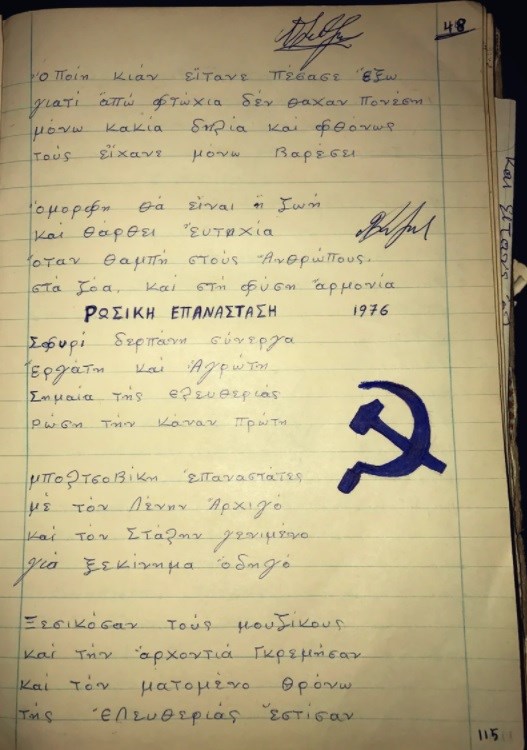 48
ὁποίη κιάν εἴτανε πέσασε ἔξω
γιατί ἀπώ φτώχια δέν θαχαν πονέση
μόνω κακία δηλία και φθόνως
τούς εἴχανε μόνω βαρέσει
ὁμορφη θά εἶναι ἡ ζωή
και θάρθει Ἐυτηχία
ὅταν θαμπή στούς Ἀνθρώπους.
στά ζόα. και στή φύση ἁρμονία
ΡΩΣΙΚΗ ΕΠΑΝΑΣΤΑΣΗ 1976
Σφυρί δερπάνη σύνεργα
Ἐργάτη και Ἀγρώτη
Σημαία τής ελευθεριάς
Ρώση τήν κάναν πρώτη
μπολτσοβίκη ἐπαναστάτες
μέ τόν Λένην Ἀρχιγό
και τον Στάλην γενιμένο
γιά ξεκίνημα ὁδηγό
Ξεσικόσαν τούς μουζίκους
και τήν ἀρχοντιά Γκρεμήσαν
και τόν ματομένο θρόνω
τής ἐλευθεριάς ἔστισαν
115
και εἴτανε